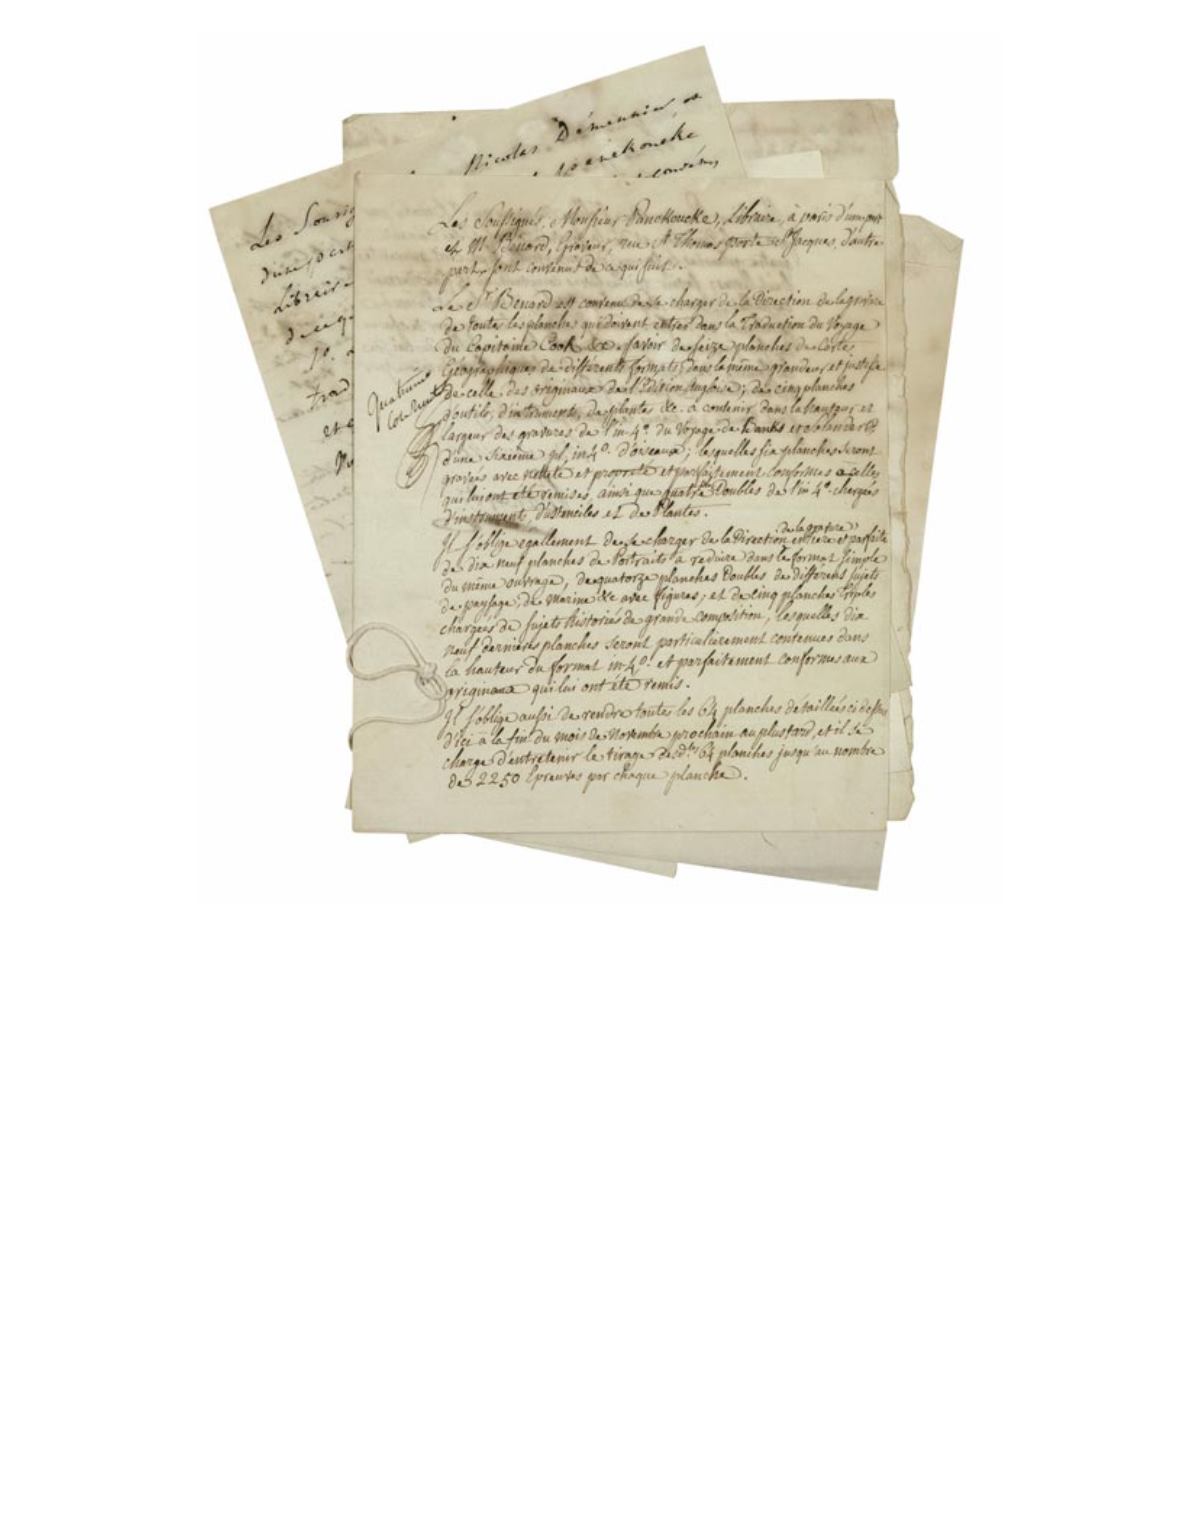 Nicolas Démeunier, et
Panckoucke
Les Soussig
d'une part
Libraire
de ce q
1º.
trad
et
Les Soussignés, Monsieur Panckoucke, Libraire, à paris d'une part
et M. Bénard, Graveur, rue St Thomas porte St Jacques, d'autre
part, sont convenus de ce qui suit.
Le Sr. Benard est convenu de se charger de la Direction de la gravure
de toutes les planches qui doivent entrer dans la Traduction du Voyage
du Capitaine Cook &c. savoir de seize planches de Carte
Géographiques de différents formats, dans la même grandeur et justifi
de celle des originaux de l'Edition Angloise; de cinq planches
d'outils, d'instruments, de plantes &c. a contenir dans la hauteur et
largeur des gravures de l'in-4º. du Voyage de Banks et Solander &
d'une sixieme pl. in 4º. d'oiseaux; lesquelles six planches seront
gravées avec netteté et propreté et parfaitement conformes a celles
qui lui ont été remises, ainsi que quatre Doubles de l'in 4º. chargées
d'instrument, d'ustenciles et de Plantes.
Quatrieme
Il s'oblige egallement de se charger de la Direction de la gravure entiere et parfaite
de dix neuf planches de Portraits à reduire dans le format Simple
du même ouvrage, de quatorze planches Doubles de différens sujets
de paysage, de marine &c avec figures; et de cinq planches Triples
chargées de sujets historiés de grande composition, lesquelles dix
neuf dernières planches seront particulierement contenues dans
la hauteur du format in-4º. et parfaitement conformes aux
originaux qui lui ont été remis.
Il s'oblige aussi de rendre toutes les 64 planches détaillées ci dessus
d'ici à la fin du mois de Novembre prochain au plus tard, et il se
charge d'entretenir le tirage des d.tes 64 planches jusqu'au nombre
de 2250 Epreuves par chaque planche.